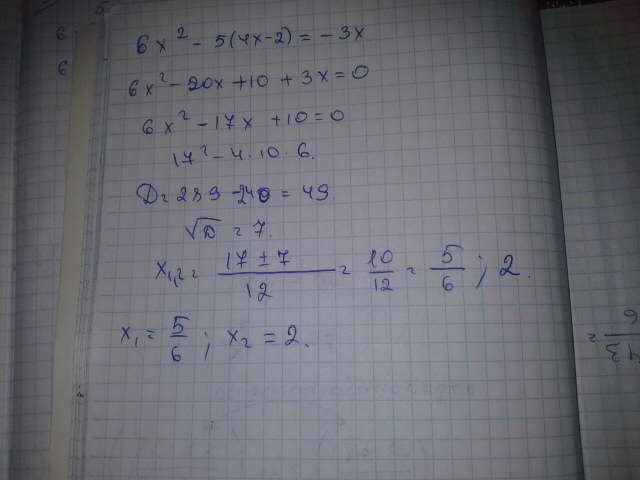 6x² - 5(4x-2) = -3x
6x² - 20x + 10 + 3x = 0
6x² - 17x + 10 = 0
17² - 4·10·6.
D = 289 - 240 = 49
√D = 7.
x₁,₂ = (17 ± 7)/12 = 10/12 = 5/6 ; 2.
x₁ = 5/6 ; x₂ = 2.